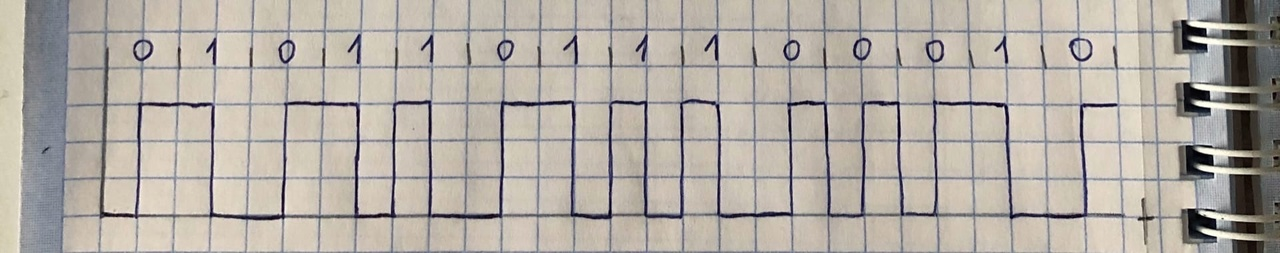 0 1 0 1 1 0 1 1 1 0 0 0 1 0